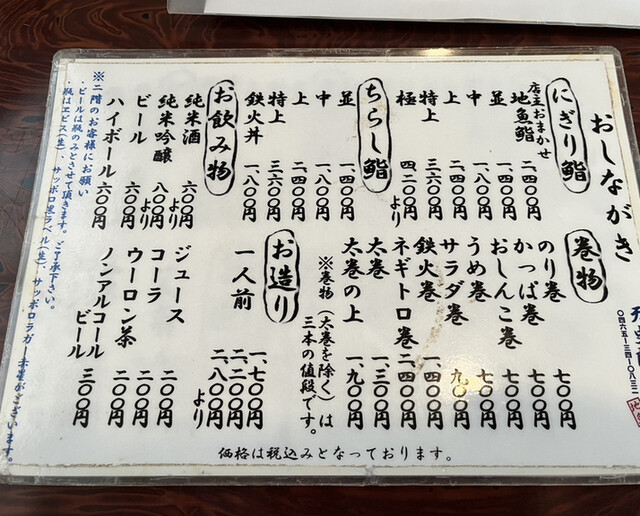 おしながき
〇四六五-三四-〇八三二
にぎり鮨
店主おまかせ
地魚鮨 二、四〇〇円
並 一、四〇〇円
中 一、八〇〇円
上 二、四〇〇円
特上 三、六〇〇円
極 四、二〇〇円より
ちらし鮨
並 一、四〇〇円
中 一、八〇〇円
上 二、四〇〇円
特上 三、六〇〇円
鉄火丼 一、八〇〇円
お飲み物
純米酒 六〇〇円より
純米吟醸 八〇〇円より
ビール 六〇〇円
ハイボール 六〇〇円
巻物
のり巻 七〇〇円
かっぱ巻 七〇〇円
おしんこ巻 七〇〇円
うめ巻 七〇〇円
サラダ巻 九〇〇円
鉄火巻 一、四〇〇円
ネギトロ巻 二、四〇〇円
太巻 一、三〇〇円
太巻の上 一、九〇〇円
※巻物(太巻を除く)は
三本の値段です。
お造り
一人前 一、七〇〇円
二、二〇〇円
二、八〇〇円より
ジュース 二〇〇円
コーラ 二〇〇円
ウーロン茶 二〇〇円
ノンアルコール
ビール 三〇〇円
※二階のお客様にお願い
・ビールは瓶のみとさせて頂きます。ご了承下さい。
・瓶はヱビス(生)、サッポロ黒ラベル(生)、サッポロラガー赤星がございます。
価格は税込みとなっております。